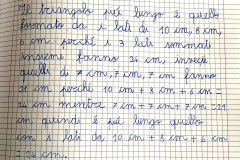 Il triangolo più lungo è quello
formato da i lati di 10 cm, 8 cm,
6 cm perché i 3 lati sommati
insieme fanno 24 cm, invece
quelli di 7 cm, 7 cm, 7 cm fanno
21 cm perché 10 cm + 8 cm + 6 cm =
24 cm mentre 7 cm + 7 cm + 7 cm = 21
cm quindi è più lungo quello
con i lati da 10 cm + 8 cm + 6 cm
= 24 cm.